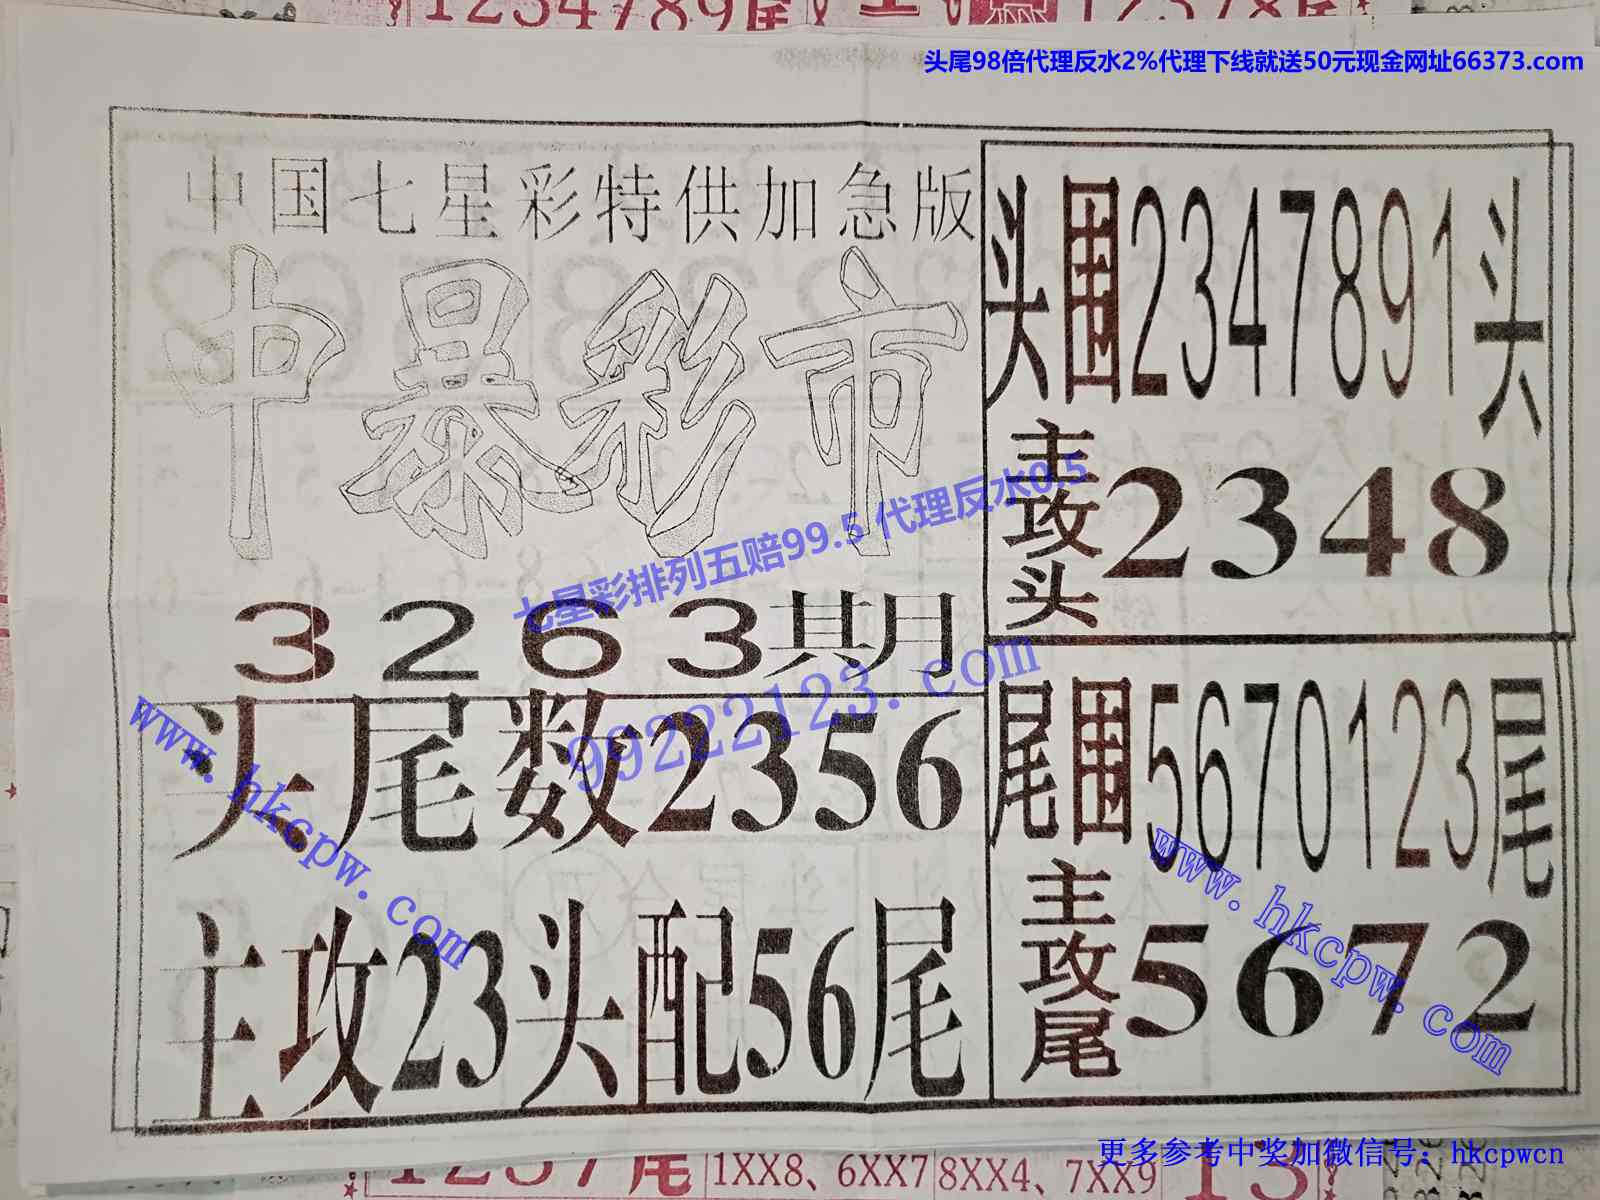 1234789尾
12378尾
头尾98倍代理反水2%代理下线就送50元现金网址66373.com
中国七星彩特供加急版
中暴彩市
3263期
头尾数2356
主攻23头配56尾
头围2347891头
主攻头2348
尾围5670123尾
主攻尾5672
七星彩排列五赔99.5 代理反水0.5
99222123.com
www.hkcpw.com
www.hkcpw.com
更多参考中奖加微信号：hkcpwcn
1237尾
1XX8、6XX7
8XX4、7XX9